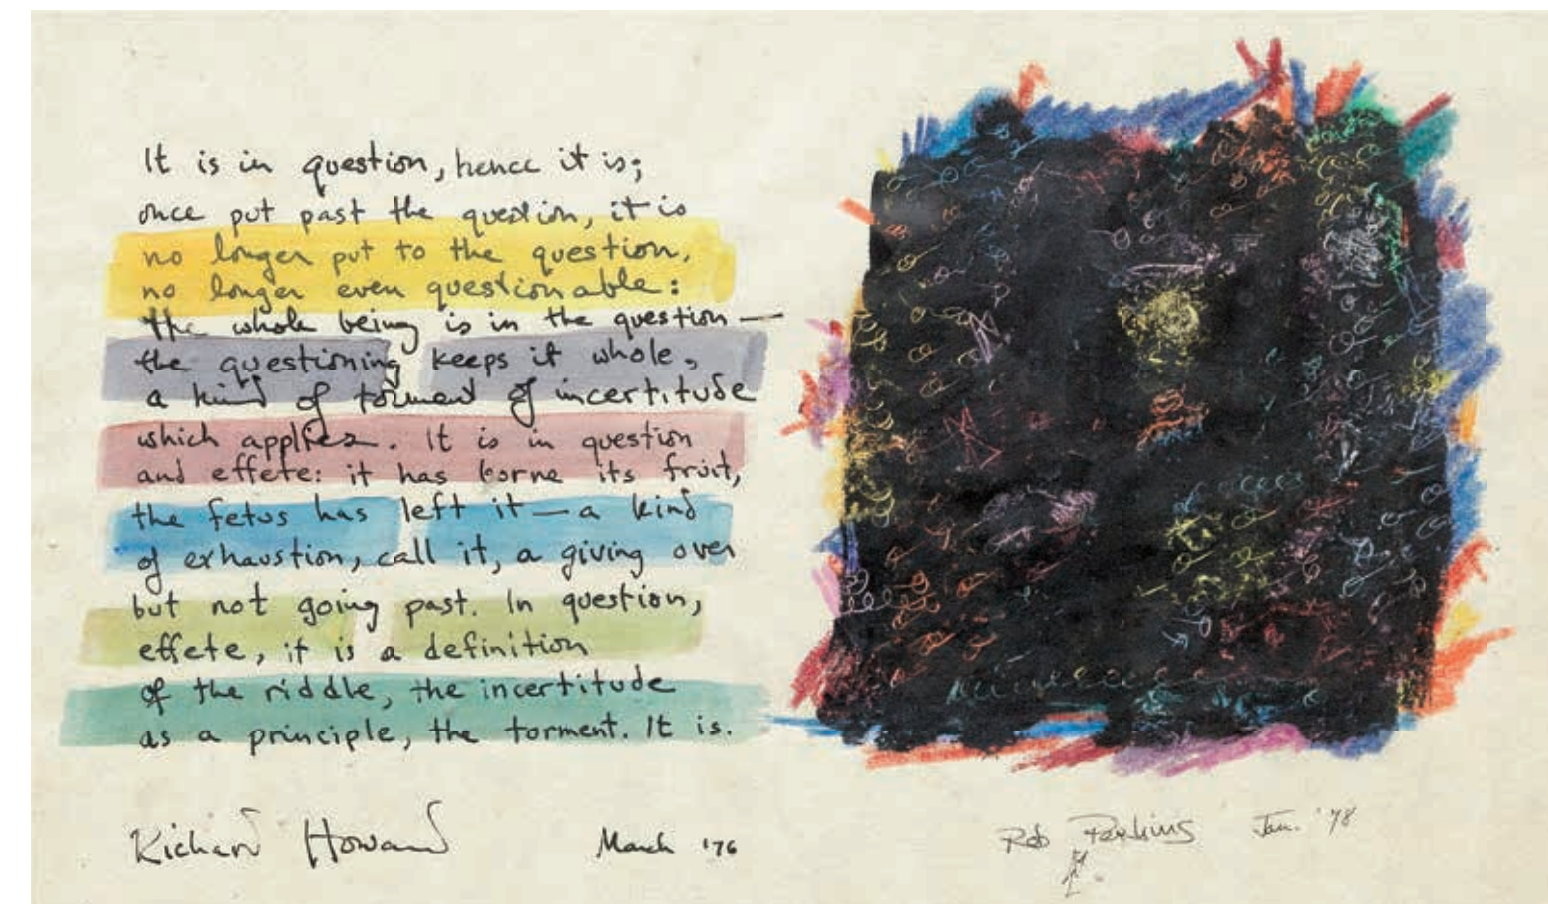 It is in question, hence it is;
once put past the question, it is
no longer put to the question,
no longer even questionable:
the whole being is in the question —
the questioning keeps it whole,
a kind of torment of incertitude
which applies. It is in question
and effete: it has borne its fruit,
the fetus has left it — a kind
of exhaustion, call it, a giving over
but not going past. In question,
effete, it is a definition
of the riddle, the incertitude
as a principle, the torment. It is.
Richard Howard March '76
Rob Perkins Jan. '78